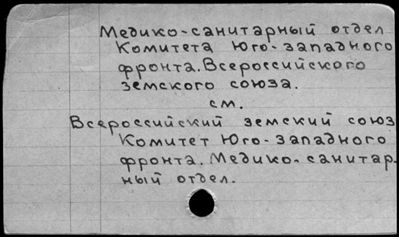 Медико-санитарный отдел
Комитета Юго-западного
фронта. Всероссийского
земского союза.
см.
Всероссийский земский союз
Комитет Юго-западного
фронта. Медико-санитар-
ный отдел.